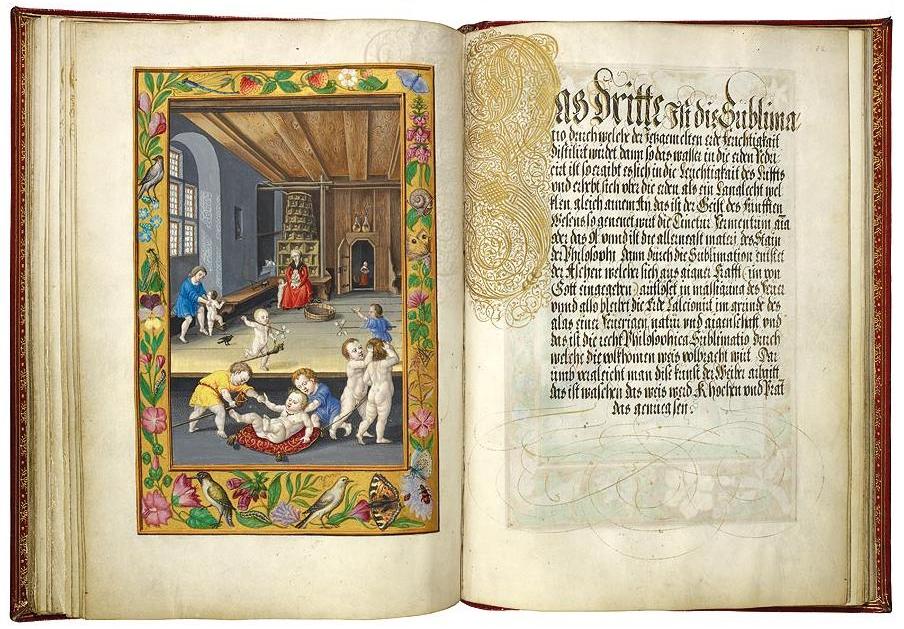 Das dritte Ist die Sublima
tio durch welche der Irrgemelten erd Feuchtigkait
distilirt wirdet dann so das wasser in die erden
ist so ergibt es sich in die Leuchtigkait des Luffts
vnd erhebt sich vber die erden als ein Langlecht wol
klen gleich ainem An das ist der Geist des Funfften
Wesens so genenet wirt die Tinctur Fermentum aia
oder das Ol vnnd ist die allernegst materj des Stain
der Philosophj dann durch die Sublimation entstet
der Aschen welche sich aus aigner Krafft im von
Gott eingegeben auflöset in mässigang des Feuer
vnnd also bleibt die Erd Calcionirt im grunde des
glas einer Feuerigen natur vnd aigenschafft vnd
das ist die recht Philosophica Sublimatio durch
welche die volkhomen weis volbracht wirt Dar
umb vergleicht man dise kunst der Weiber arbaitt
das ist waschen das weis werd Khochen vnd Prat
das genueg sey